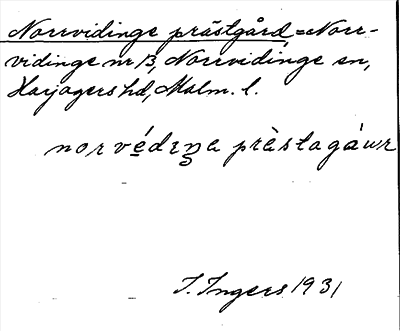 Norrvidinge prästgård = Norr-
vidinge nr 13, Norrvidinge sn,
Harjagers hd, Malm. l.
norvédɪŋa prästagáwr
I. Ingers 1931